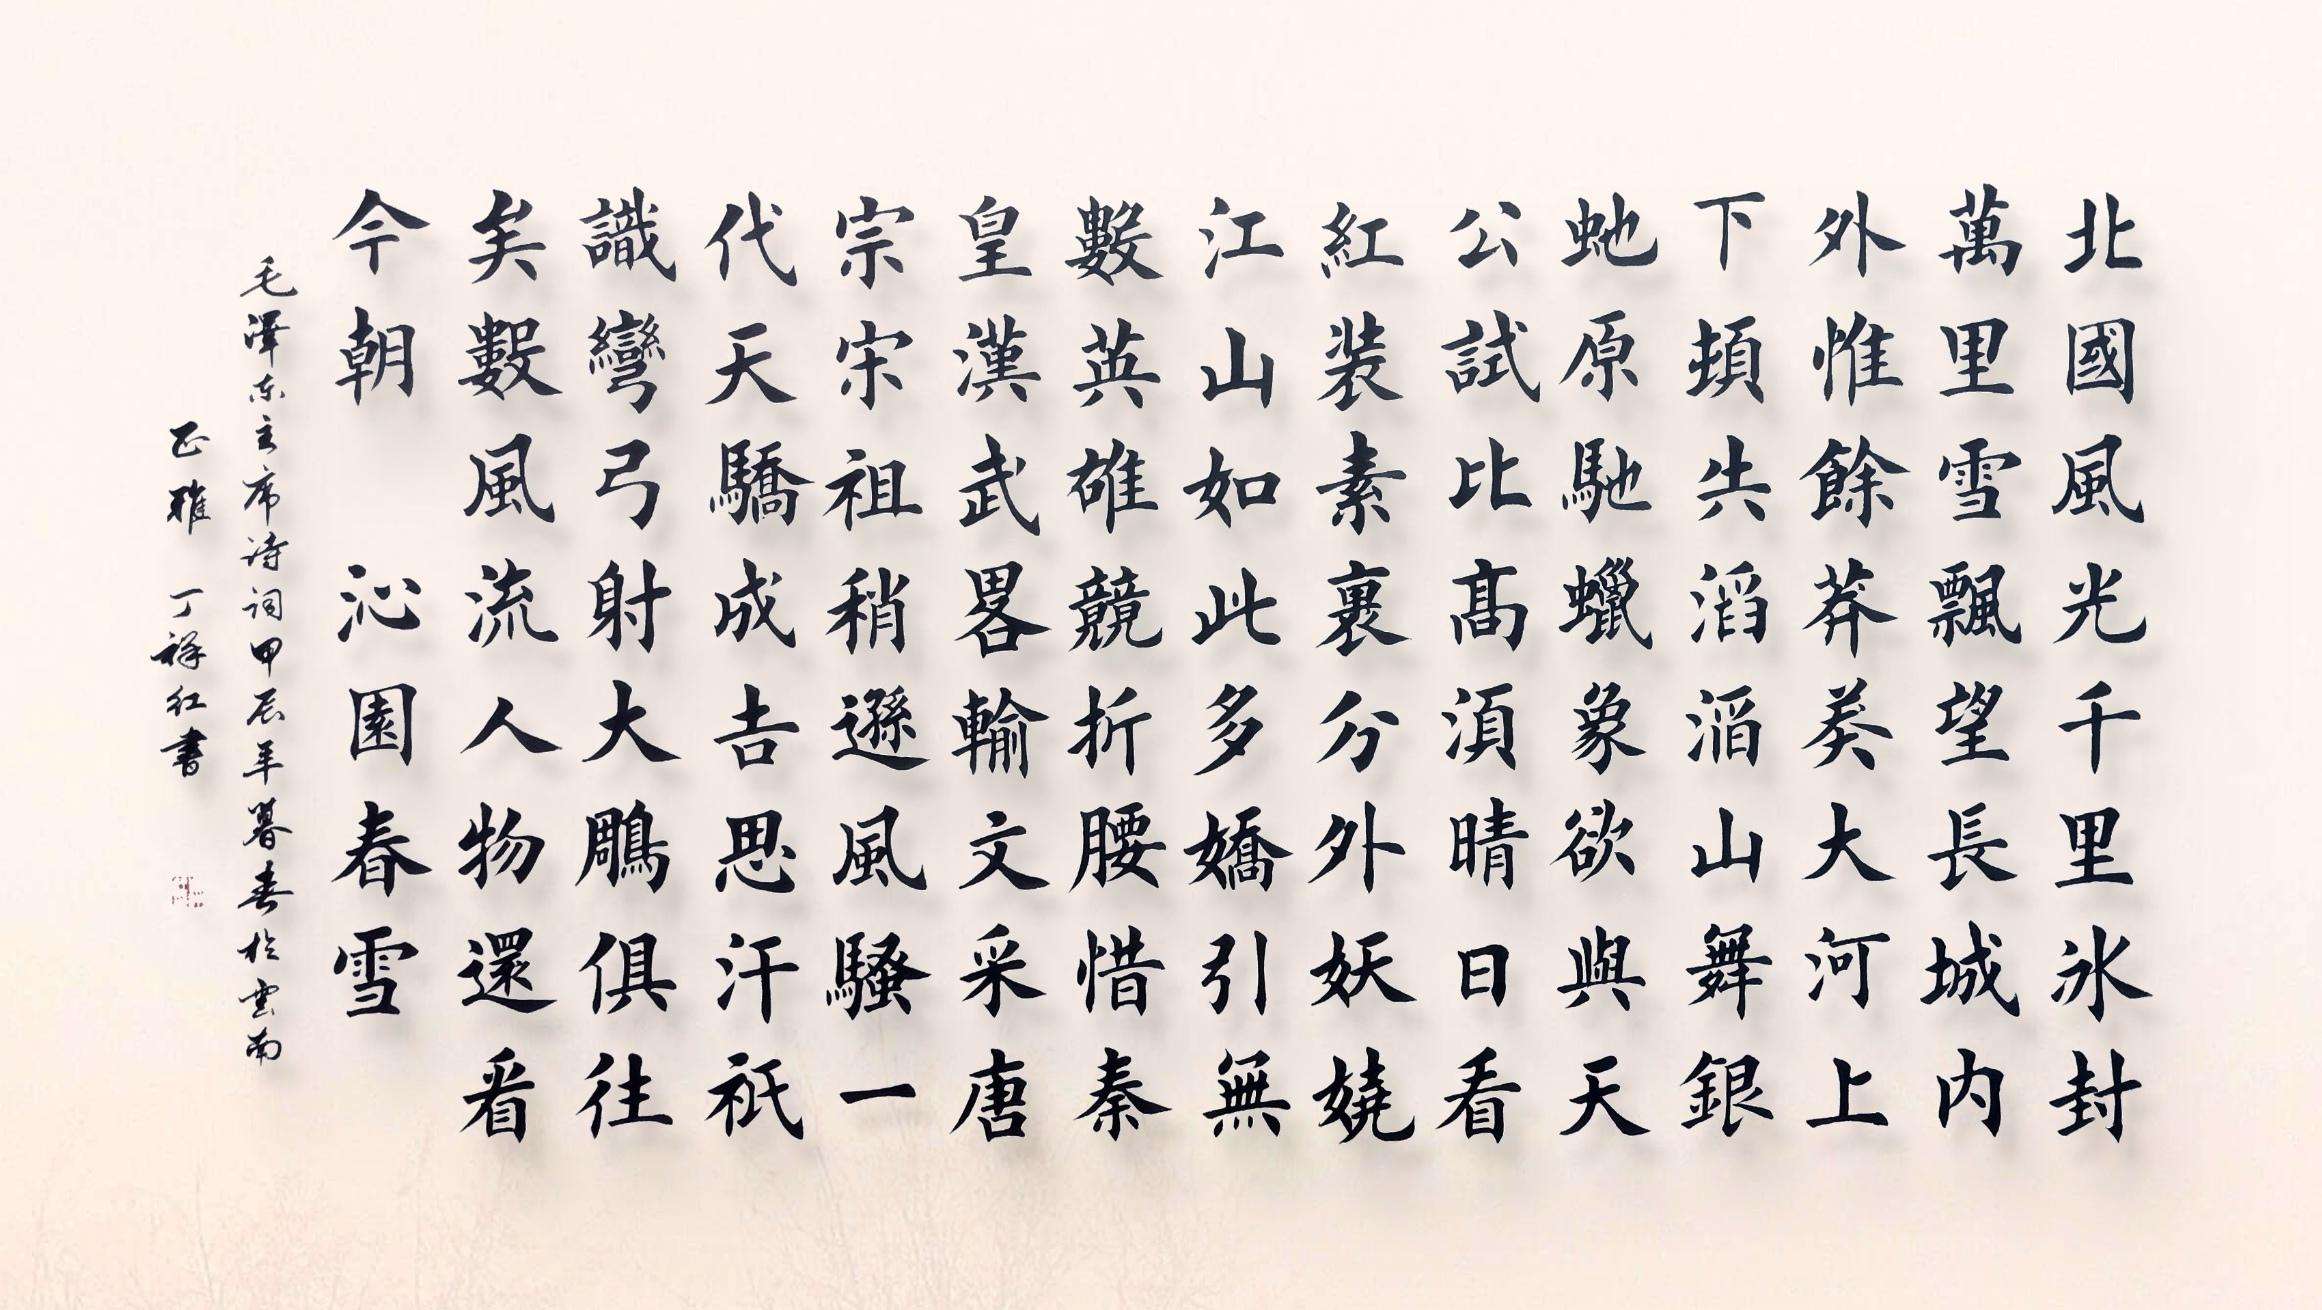 北國風光千里氷封
萬里雪飄望長城内
外惟餘莽莽大河上
下頓失滔滔山舞銀
虵原馳蠟象欲與天
公試比髙湏晴日看
紅装素裹分外妖嬈
江山如此多嬌引無
數英雄競折腰惜秦
皇漢武畧輸文采唐
宗宋祖稍遜風騷一
代天驕成吉思汗祇
識彎弓射大鵰俱往
矣數風流人物還看
今朝 沁園春雪
毛澤东主席诗词甲辰年暮春於雲南
正雅 丁祥红書